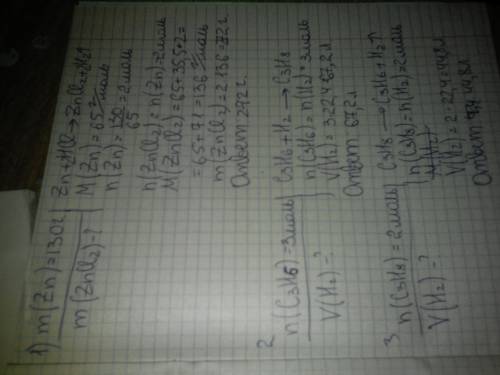 1) m(Zn)=130г
m(ZnCl2)-?
Zn+HCl→ZnCl2+H2↑
M(Zn)=65 г/моль
n(Zn)=130/65=2моль
n(ZnCl2)=n(Zn)=2моль
M(ZnCl2)=65+35,5*2=
=65+71=136 г/моль
m(ZnCl2)=2·136=272г
Ответ 272г
2
n(C3H6)=3моль
V(H2)=?
C3H6+H2→C3H8
n(C3H6)=n(H2)=3моль
V(H2)=3·22,4=67,2л
Ответ 67,2л
3
n(C3H8)=2моль
V(H2)-?
C3H8→C3H6+H2↑
n(C3H8)=n(H2)=2моль
V(H2)=2·22,4=44,8л
Ответ 44,8л